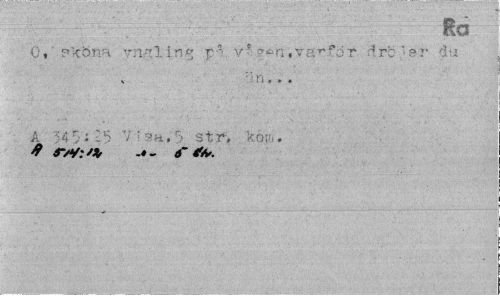 Ra
O, sköna yngling på vägen, varför dröjer du
än...
A 345:25 Visa. 5 str. kom.
A 514:12 -"- 5 str.